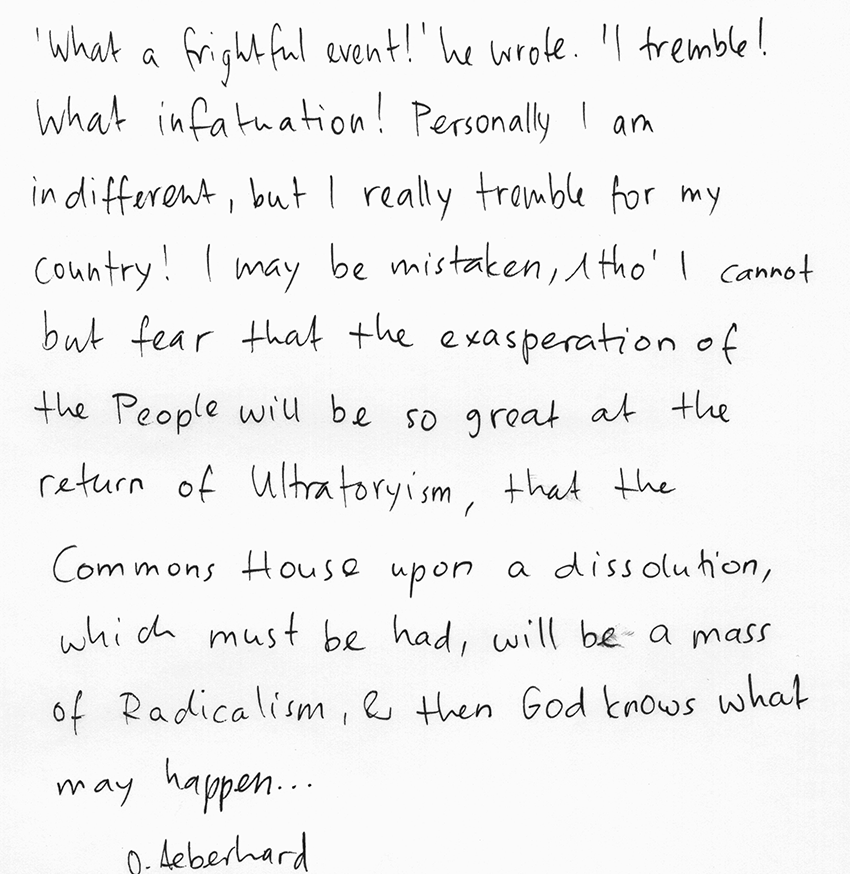 'What a frightful event!' he wrote. 'I tremble!
What infatuation! Personally I am
indifferent, but I really tremble for my
country! I may be mistaken, Atho' I cannot
but fear that the exasperation of
the People will be so great at the
return of Ultratoryism, that the
Commons House upon a dissolution,
which must be had, will be a mass
of Radicalism, & then God knows what
may happen...
O. Aeberhard